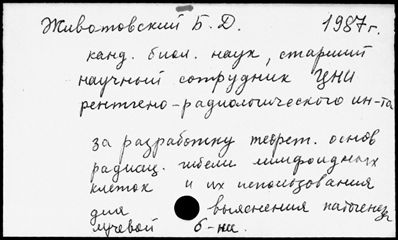 Животовский Б. Д. 1987 г.
канд. биол. наук, старший
научный сотрудник ЦНИ
рентгено-радиологического ин-та
за разработку теорет. основ
радиац. гибели лимфоидных
клеток и их использования
для выяснения патогенеза
лучевой б-ни.